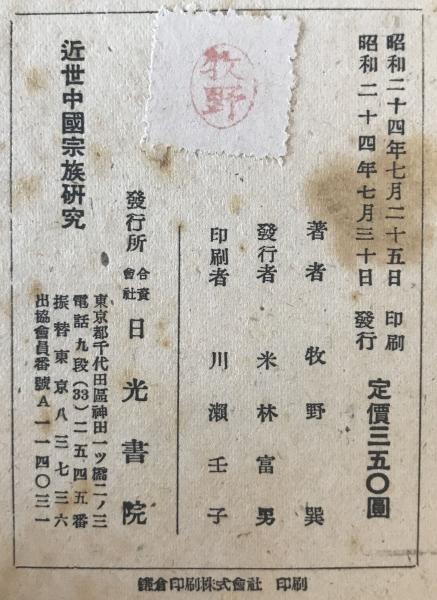 昭和二十四年七月二十五日 印刷
昭和二十四年七月三十日 發行
定價三五〇圓
著者 牧野巽
發行者 米林富男
印刷者 川瀬壬子
發行所 合資會社 日光書院
東京都千代田區神田一ツ橋二ノ三
電話九段(33)二五四五番
振替東京八三七三六
出協會員番號A一一四〇三一
牧野
近世中國宗族研究
鎌倉印刷株式會社 印刷